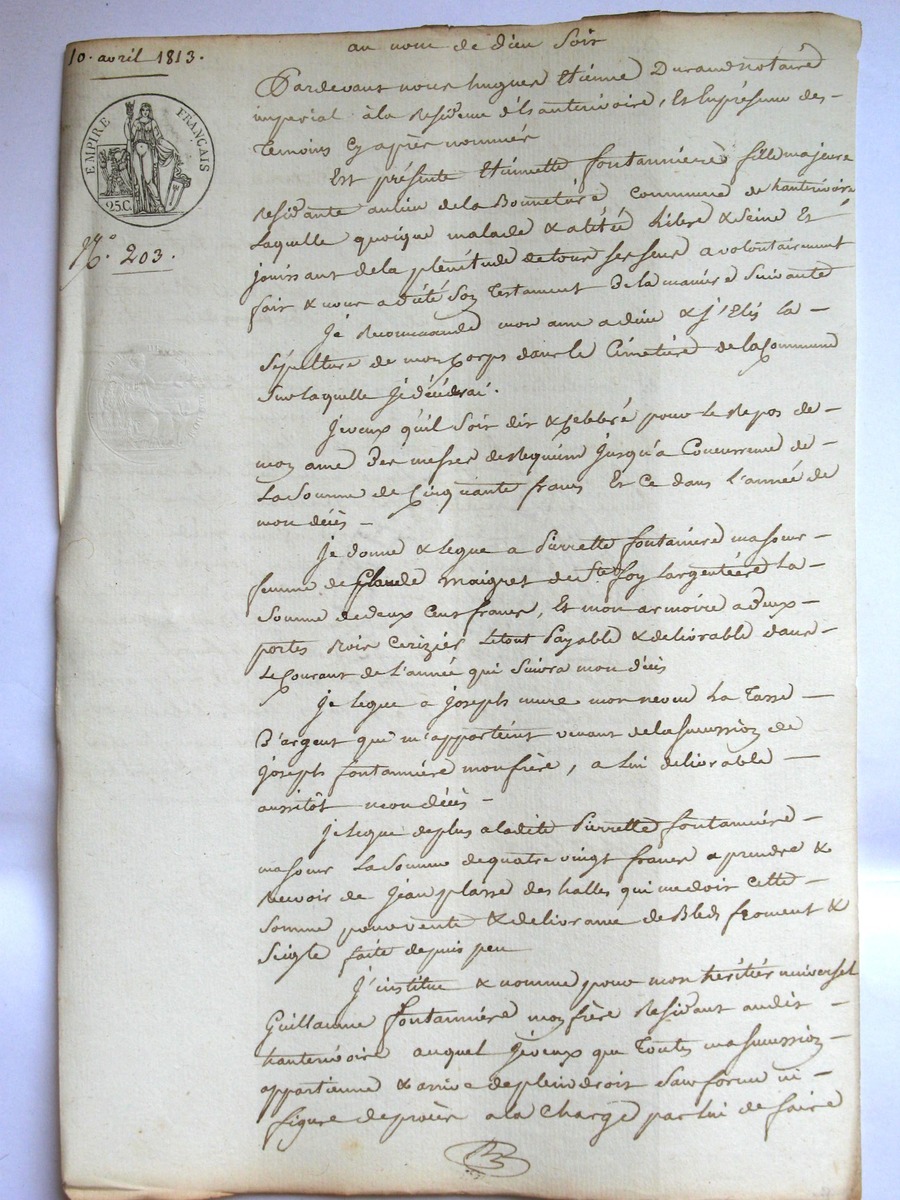 10. avril 1813.
EMPIRE FRANÇAIS
25.C.
N.° 203.
au nom de dieu soit
Pardevant nous hugues Etienne Durand notaire
imperial à la Residence d'hanterivoire, Et En présence des
Temoins Cy après nommés
Est présente Etiennette fontannière fille majeure
Residante au lieu de la Bonneture Commune de hanterivoire
Laquelle quoique malade & alitée Libre & Seine Et
jouissant de la plénitude de tous ses sens a volontairement
fait & nous a dicté Son Testament De la manière Suivante
Je Recommande mon ame a dieu & j'Elis la
Sépulture de mon Corps dans le Cimetière de la Commune
Sur laquelle Je décédrai.
Je veux qu'il Soit dit & Celebré pour le Repos de
mon ame Des messes de Requiem Jusqu'à Concurrence de
La Somme de Cinquante francs Et Ce dans l'année de
mon décès
Je donne & Legue a Pierrette fontanière ma sœur
femme de Claude maigret de Ste foy Largentière La
Somme de deux Cent francs, Et mon armoire a Deux
portes Bois Cerizier Le tout Payable & delivrable dans
Le Courant de L'année qui Suivra mon décès
Je Legue à Joseph mure mon neveu La Tasse
D'argent qui m'appartient venant de la Succession de
Joseph fontannière mon frère, a Lui delivrable
aussitôt mon décès
Je Legue de plus a ladite Pierrette fontannière
ma sœur La Somme de quatre vingt francs a prendre &
Recevoir de Jean plasse des halles qui me doit Cette
Somme pour vente & delivrance de Bled froment &
Seigle faite depuis peu
J'institue & nomme pour mon héritier universel
Guillaume fontannière mon frère Residant audit
hanterivoire auquel Je veux que Toute ma Succession
appartienne & arrive de plein droit Sans forme ni
figure de procès a la Charge par Lui de faire